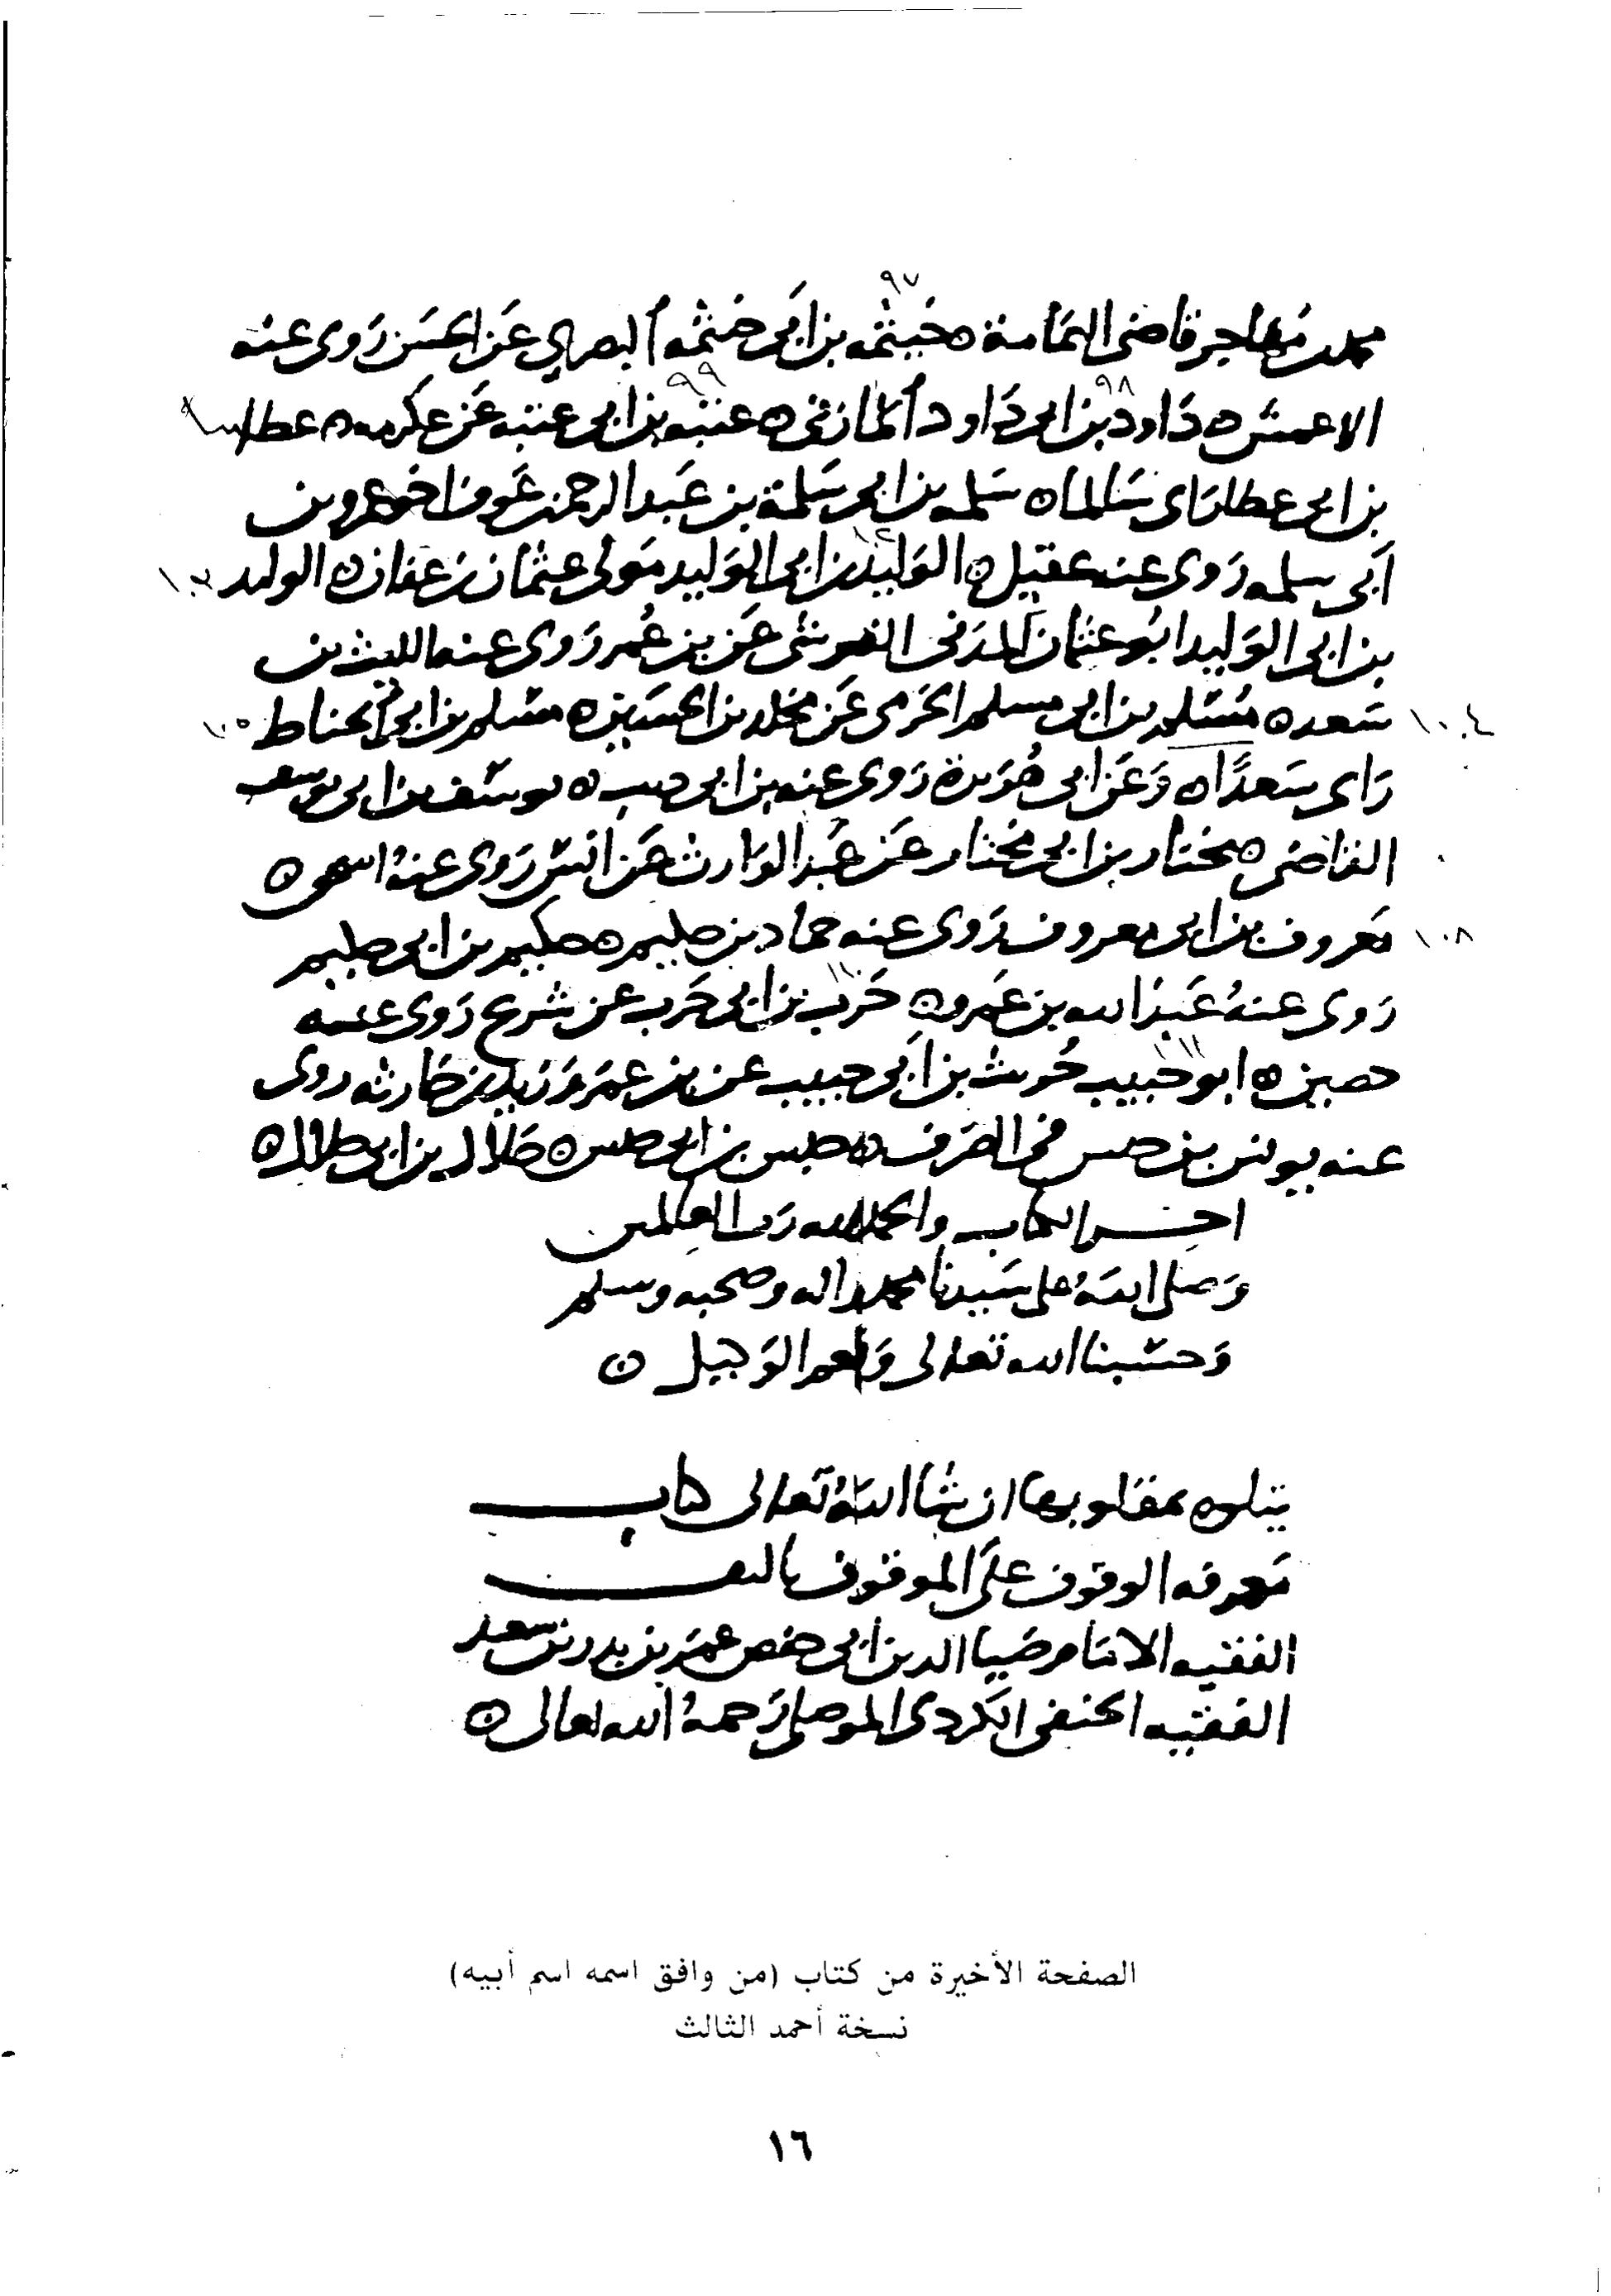 ٩٧
محمد بن مهاجر قاضى اليمامة ه خيثمه بن ابى خيثمه البصري عن الحسن روى عنه
٩٨ ٩٩
الاعمش ه داود بن ابى داود المازنى ه عنبه بن ابى عنبه عن عكرمه ه عطا
بن ابى عطا راى سالما ه سلمه بن ابى سلمة بن عبد الرحمن عوف اخو عمرو بن
ابى سلمه روى عنه عقيل ه الوليد بن ابى الوليد مولى عثمان بن عفان ه الوليد
بن ابى الوليد ابو عثمان المدنى القرشى عن بن عمر روى عنه الليث بن
١٠٤ سعد ه مسلم بن ابى مسلم الحرمى عن مخلد بن الحسين ه مسلم بن ابى الحناط ١٠٥
راى سعدا ه وعن ابى هريرة روى عنه بن ابى حبيب ه يوسف بن ابى يوسف
القاضى ه مختار بن ابى مختار عن عبد الوارث عن انس روى عنه ه
١٠٨ معروف بن ابى معروف روى عنه حماد بن حكيم ه حكيم بن ابى حكيم
روى عنه عبد الله بن عمرو ه حرب بن ابى حرب عن شريح روى عنه
حصين ه ابو حبيب حرث بن ابى حبيب عن بن عمر وزيد بن حارثه روى
عنه يونس بن فى الصرف ه بن ابى ه طلال بن ابى طلال ه
اخر الكتاب والحمد لله رب العالمين
وصلى الله على سيدنا محمد واله وصحبه وسلم
وحسبنا الله تعالى ونعم الوكيل ه
يتلوه بمقلوبها ان شا الله تعالى كتاب
معرفه الوقوف على الموقوف تاليف
الفقيه الامام ضيا الدين ابى حفص عمر بن بدر بن سعد
الفقيه الحنفى الكردى الموصلى رحمه الله تعالى ه
الصفحة الأخيرة من كتاب (من وافق اسمه اسم أبيه)
نسخة أحمد الثالث
١٦